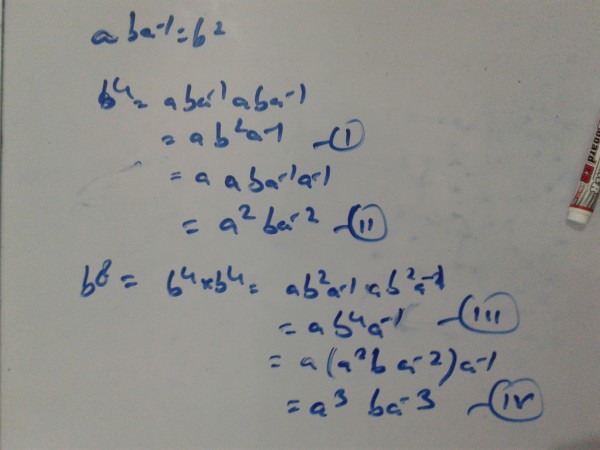 a ba-1 = b2
b4 = aba-1 aba-1
= ab2a-1 - I
= a aba-1a-1
= a2 ba-2 - II
b8 = b4 × b4 = ab2a-1 . ab2a-1
= ab4a-1 - III
= a(a2b a-2)a-1
= a3 ba-3 - IV